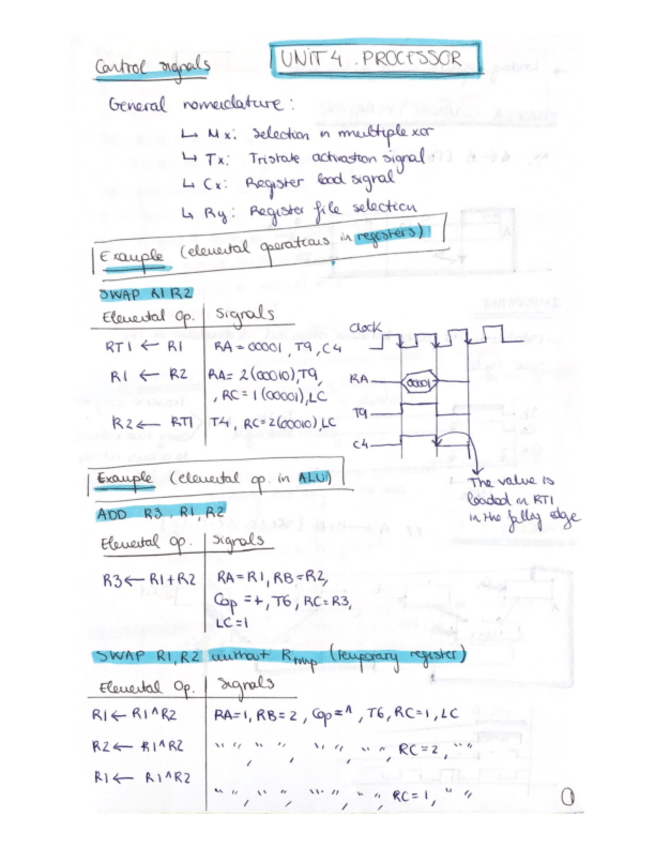 UNIT 4. PROCESSOR
Control signals
General nomenclature:
↳ Mx: Selection in multiplexor
↳ Tx: Tristate activation signal
↳ Cx: Register load signal
↳ Ry: Register file selection
Example (elemental operations in registers)
SWAP R1 R2
Elemental Op. Signals
RT1 ← R1 RA = 00001, T9, C4
R1 ← R2 RA = 2(00010), T9,
, RC = 1(00001), LC
R2 ← RT1 T4, RC = 2(00010), LC
Clock
RA 00001
T9
C4
The value is
loaded in RT1
in the falling edge
Example (elemental op. in ALU)
ADD R3, R1, R2
Elemental Op. Signals
R3 ← R1 + R2 RA = R1, RB = R2,
Cop = +, T6, RC = R3,
LC = 1
SWAP R1, R2 without Rtmp (temporary register)
Elemental Op. Signals
R1 ← R1^R2 RA = 1, RB = 2, Cop = ^, T6, RC = 1, LC
R2 ← R1^R2 " " " ", " " " ", " ", RC = 2, " "
R1 ← R1^R2
" ", " ", " ", " ", RC = 1, " "